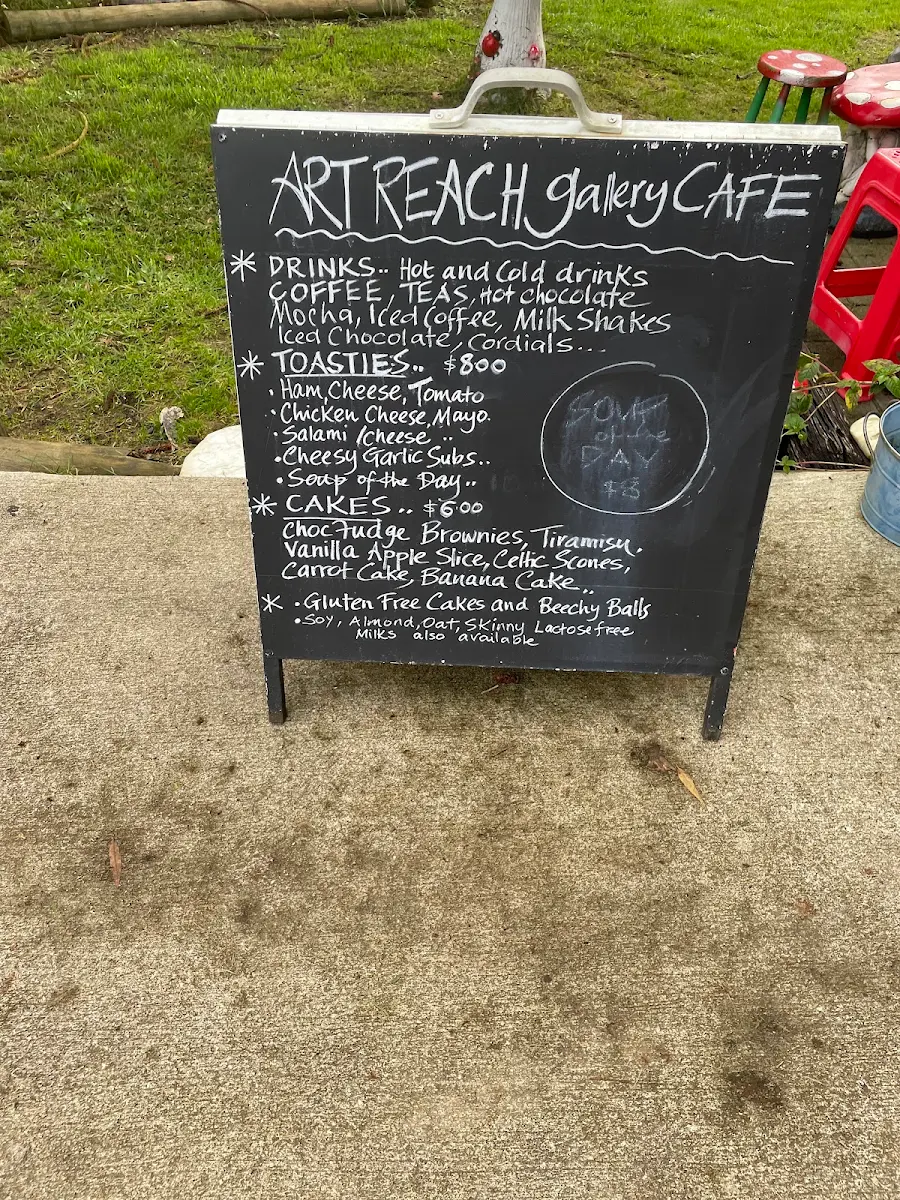 ART REACH gallery CAFE
* DRINKS.. Hot and Cold drinks
COFFEE, TEAS, Hot chocolate
Mocha, Iced Coffee, Milk Shakes
Iced Chocolate, Cordials...
* TOASTIES.. $800
• Ham, Cheese, Tomato
• Chicken Cheese, Mayo.
• Salami / cheese ..
• Cheesy Garlic Subs..
• Soup of the Day..
SOUP
of the
DAY
$8
* CAKES.. $6.00
Choc Fudge Brownies, Tiramisu,
Vanilla Apple Slice, Celtic Scones,
Carrot Cake, Banana Cake..
* • Gluten Free Cakes and Beechy Balls
• Soy, Almond, Oat, Skinny Lactose free
Milks also available